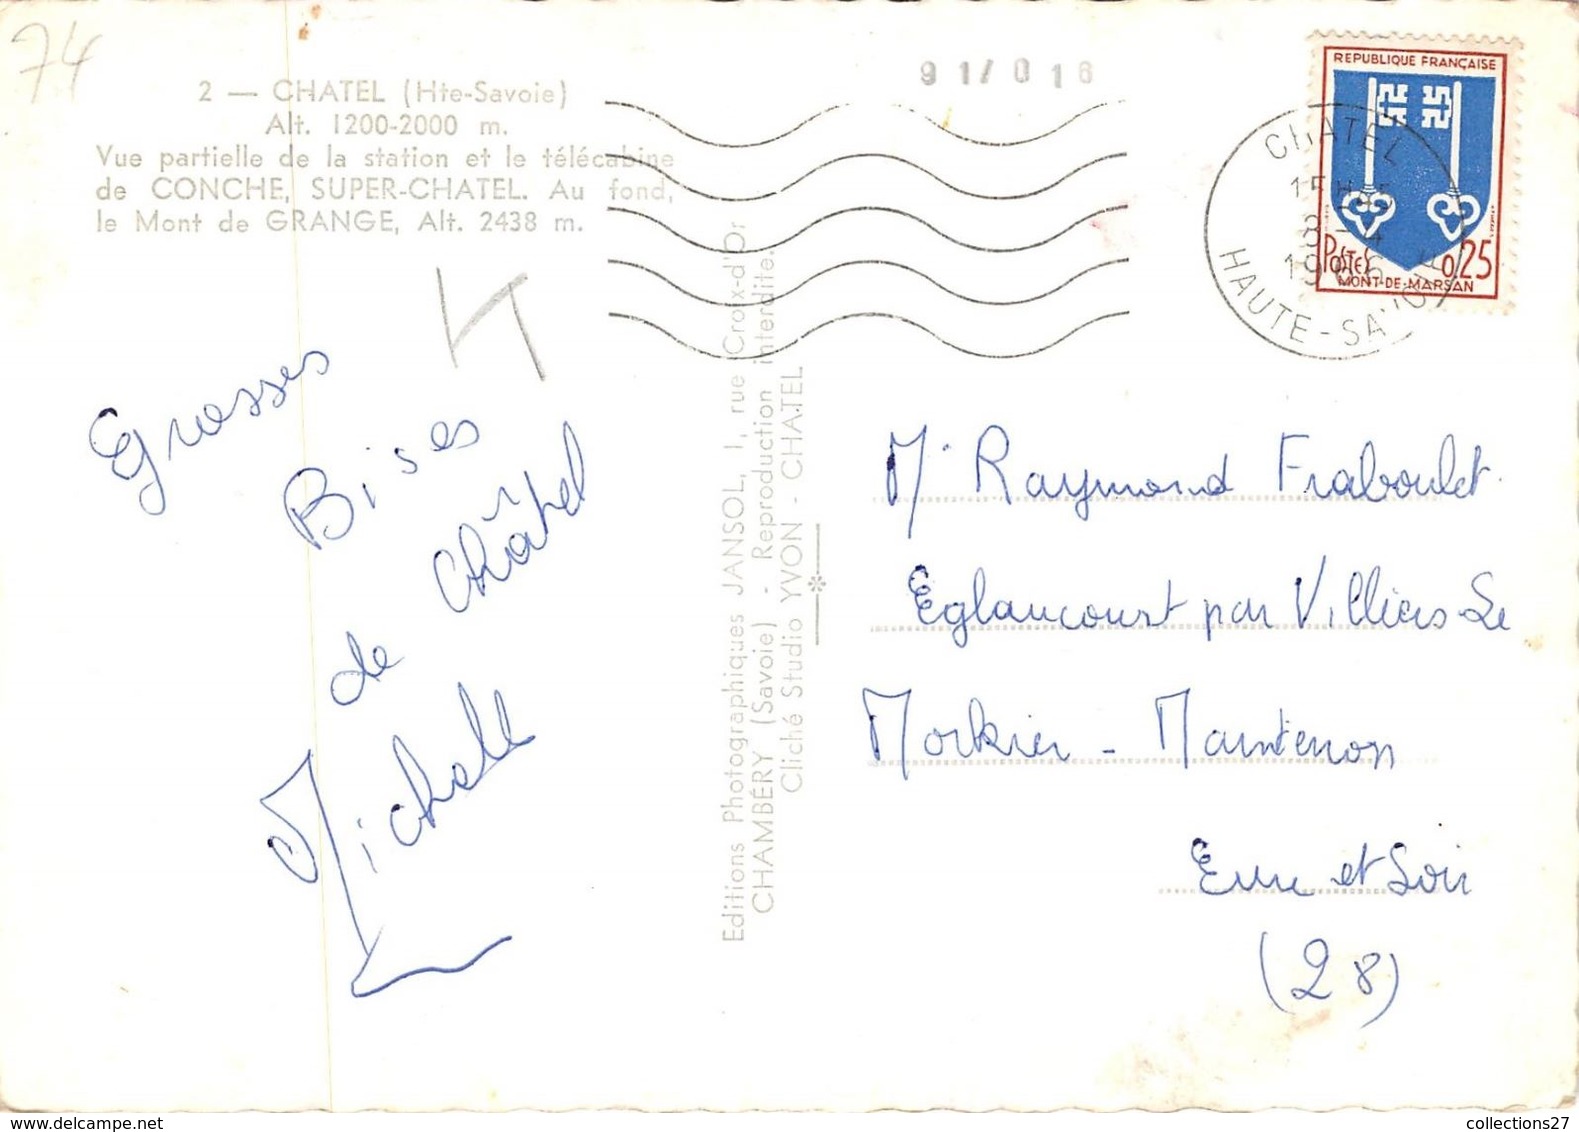 74
2 — CHATEL (Hte-Savoie)
Alt. 1200-2000 m.
Vue partielle de la station et le télécabine
de CONCHE, SUPER-CHATEL. Au fond,
le Mont de GRANGE, Alt. 2438 m.
91/016
REPUBLIQUE FRANÇAISE
POSTES 0,25
MONT-DE-MARSAN
CHATEL
8-4
1966
HAUTE-SAVOIE
Grosses
Bises
de Châtel
Michelle
Editions Photographiques JANSOL, 1, rue Croix-d'Or
CHAMBÉRY (Savoie) - Reproduction interdite.
Cliché Studio YVON - CHATEL
Mr Raymond Fraboulet
Eglancourt par Villiers-Le
Morhier - Maintenon
Eure et Loir
(28)
collections27